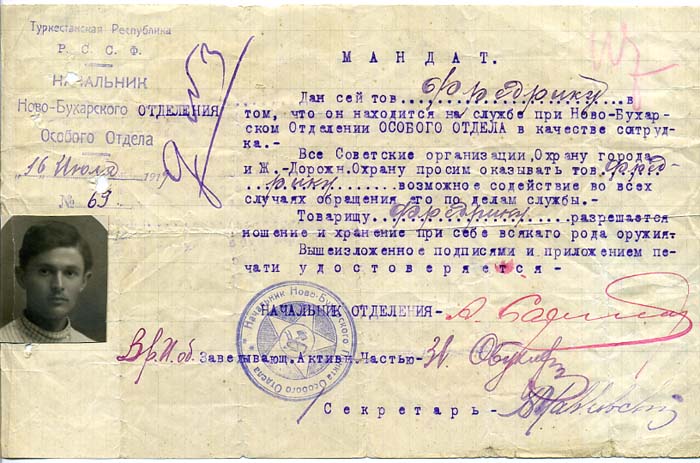 Туркестанская Республика
Р. С. С. Ф.
НАЧАЛЬНИК
Ново-Бухарского ОТДЕЛЕНИЯ
Особого Отдела
16 Июля 1919
№ 69
МАНДАТ.
Дан сей тов. Фредрику в
том, что он находится на службе при Ново-Бухар-
ском Отделении ОСОБОГО ОТДЕЛА в качестве сотруд-
ка.-
Все Советские организации, Охрану города
и Ж.-Дорожн.Охрану просим оказывать тов. Фред-
рику возможное содействие во всех
случаях обращения его по делам службы.-
Товарищу Фредрику разрешается
ношение и хранение при себе всякаго рода оружия
Вышеизложенное подписями и приложением пе-
чати удостоверяется -
НАЧАЛЬНИК ОТДЕЛЕНИЯ-
Вр.И.об. Заведывающ. Активн. Частью-
Секретарь-
Начальник Ново-Бухарского пункта Особого Отдела